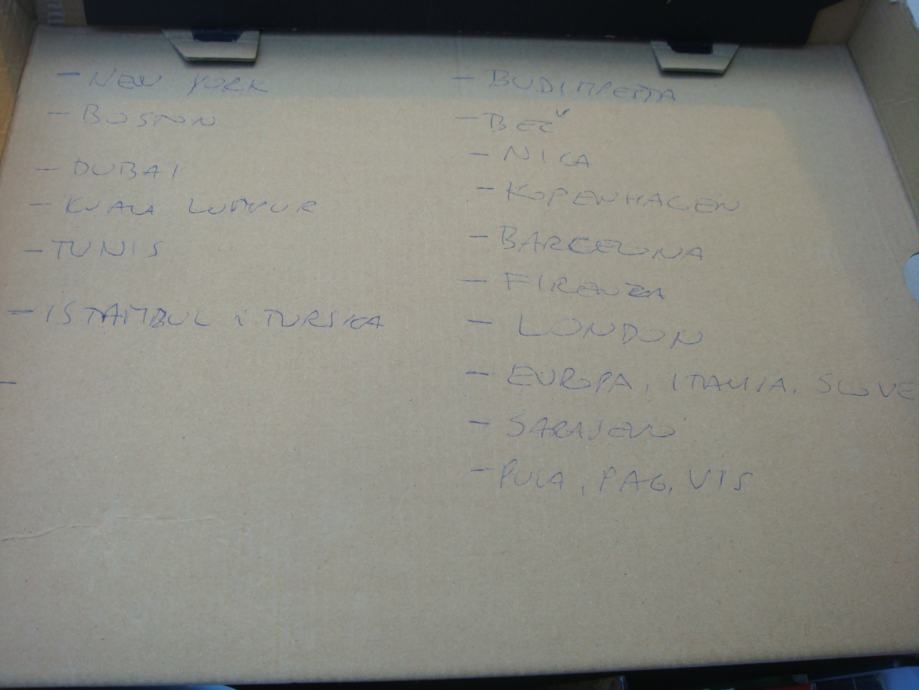 - NEW YORK
- BOSTON
- DUBAI
- KUALA LUMPUR
- TUNIS
- ISTAMBUL i TURSKA
-
- BUDIMPEŠTA
- BEČ
- NICA
- KOPENHAGEN
- BARCELONA
- FIRENZA
- LONDON
- EUROPA, ITALIJA, SLOVE
- SARAJEVO
- PULA, PAG, VIS